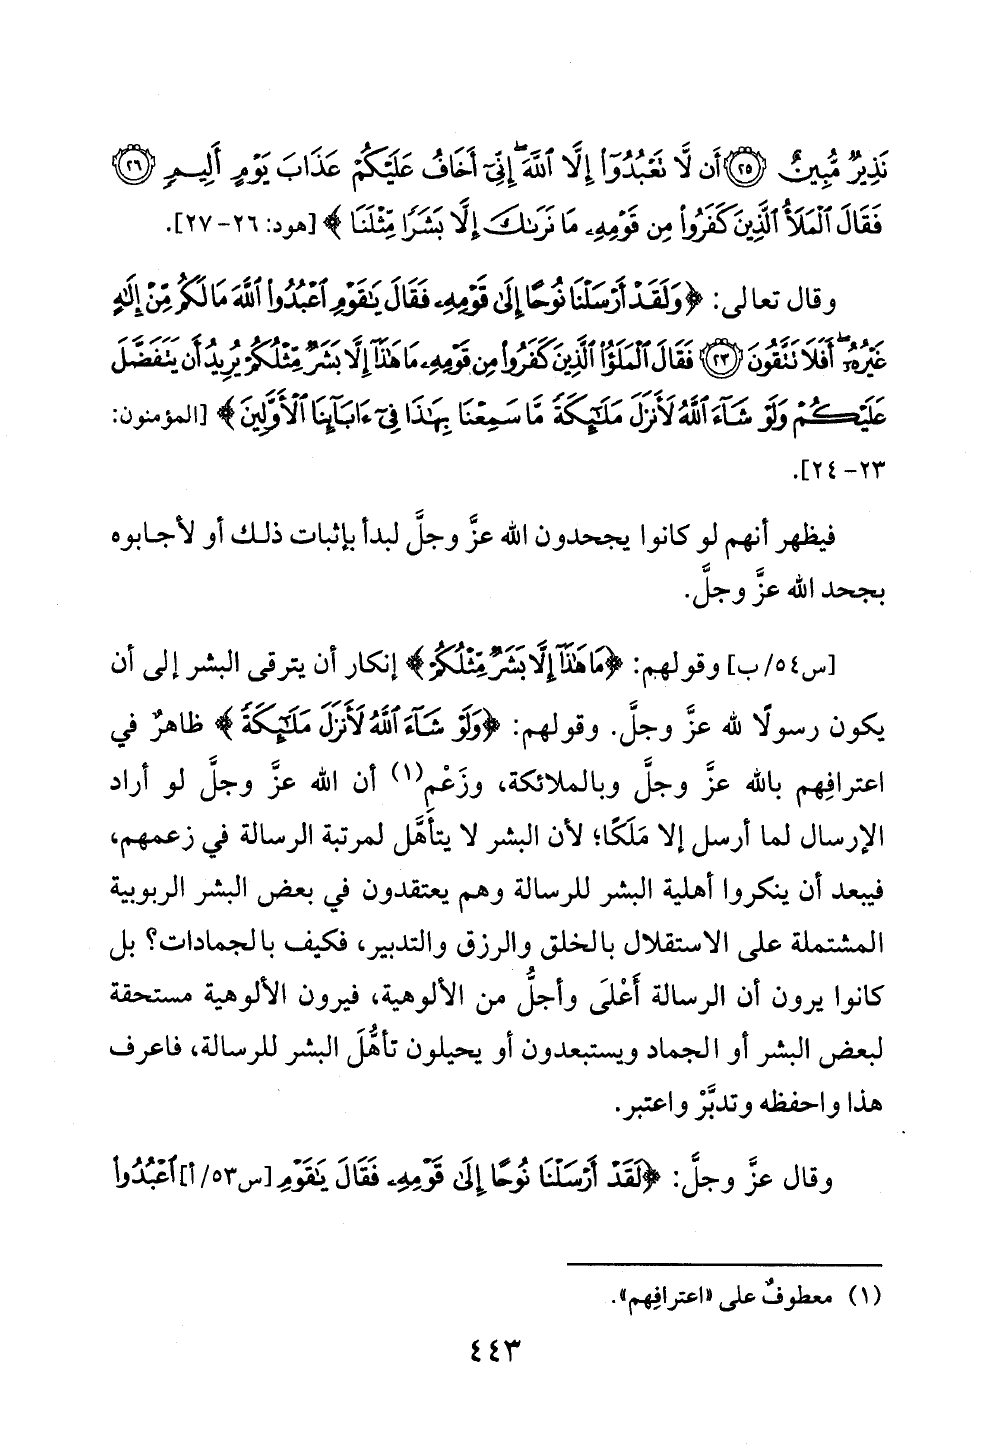 نَذِيرٌ مُّبِينٌ ﴿٢٥﴾ أَن لَّا تَعْبُدُوٓا۟ إِلَّا ٱللَّهَ ۖ إِنِّىٓ أَخَافُ عَلَيْكُمْ عَذَابَ يَوْمٍ أَلِيمٍ ﴿٢٦﴾
فَقَالَ ٱلْمَلَأُ ٱلَّذِينَ كَفَرُوا۟ مِن قَوْمِهِۦ مَا نَرَىٰكَ إِلَّا بَشَرًا مِّثْلَنَا ﴾ [هود: ٢٦-٢٧].
وقال تعالى: ﴿ وَلَقَدْ أَرْسَلْنَا نُوحًا إِلَىٰ قَوْمِهِۦ فَقَالَ يَـٰقَوْمِ ٱعْبُدُوا۟ ٱللَّهَ مَا لَكُم مِّنْ إِلَـٰهٍ
غَيْرُهُۥٓ ۖ أَفَلَا تَتَّقُونَ ﴿٢٣﴾ فَقَالَ ٱلْمَلَؤُا۟ ٱلَّذِينَ كَفَرُوا۟ مِن قَوْمِهِۦ مَا هَـٰذَآ إِلَّا بَشَرٌ مِّثْلُكُمْ يُرِيدُ أَن يَتَفَضَّلَ
عَلَيْكُمْ وَلَوْ شَآءَ ٱللَّهُ لَأَنزَلَ مَلَـٰٓئِكَةً مَّا سَمِعْنَا بِهَـٰذَا فِىٓ ءَابَآئِنَا ٱلْأَوَّلِينَ ﴾ [المؤمنون:
٢٣-٢٤].
فيظهر أنهم لو كانوا يجحدون الله عزَّ وجلَّ لبدأ بإثبات ذلك أو لأجابوه
بجحد الله عزَّ وجلَّ.
[س٥٤/ب] وقولهم: ﴿ مَا هَـٰذَآ إِلَّا بَشَرٌ مِّثْلُكُمْ ﴾ إنكار أن يترقى البشر إلى أن
يكون رسولًا لله عزَّ وجلَّ. وقولهم: ﴿ وَلَوْ شَآءَ ٱللَّهُ لَأَنزَلَ مَلَـٰٓئِكَةً ﴾ ظاهرٌ في
اعترافِهم بالله عزَّ وجلَّ وبالملائكة، وزَعْمِ(١) أن الله عزَّ وجلَّ لو أراد
الإرسال لما أرسل إلا مَلَكًا؛ لأن البشر لا يتأهَّل لمرتبة الرسالة في زعمهم،
فيبعد أن ينكروا أهلية البشر للرسالة وهم يعتقدون في بعض البشر الربوبية
المشتملة على الاستقلال بالخلق والرزق والتدبير، فكيف بالجمادات؟ بل
كانوا يرون أن الرسالة أَعْلَى وأجلُّ من الألوهية، فيرون الألوهية مستحقة
لبعض البشر أو الجماد ويستبعدون أو يحيلون تأهُّلَ البشر للرسالة، فاعرف
هذا واحفظه وتدبَّرْ واعتبر.
وقال عزَّ وجلَّ: ﴿ لَقَدْ أَرْسَلْنَا نُوحًا إِلَىٰ قَوْمِهِۦ فَقَالَ يَـٰقَوْمِ [س٥٣/أ] ٱعْبُدُوا۟
(١) معطوفٌ على «اعترافِهم».
٤٤٣